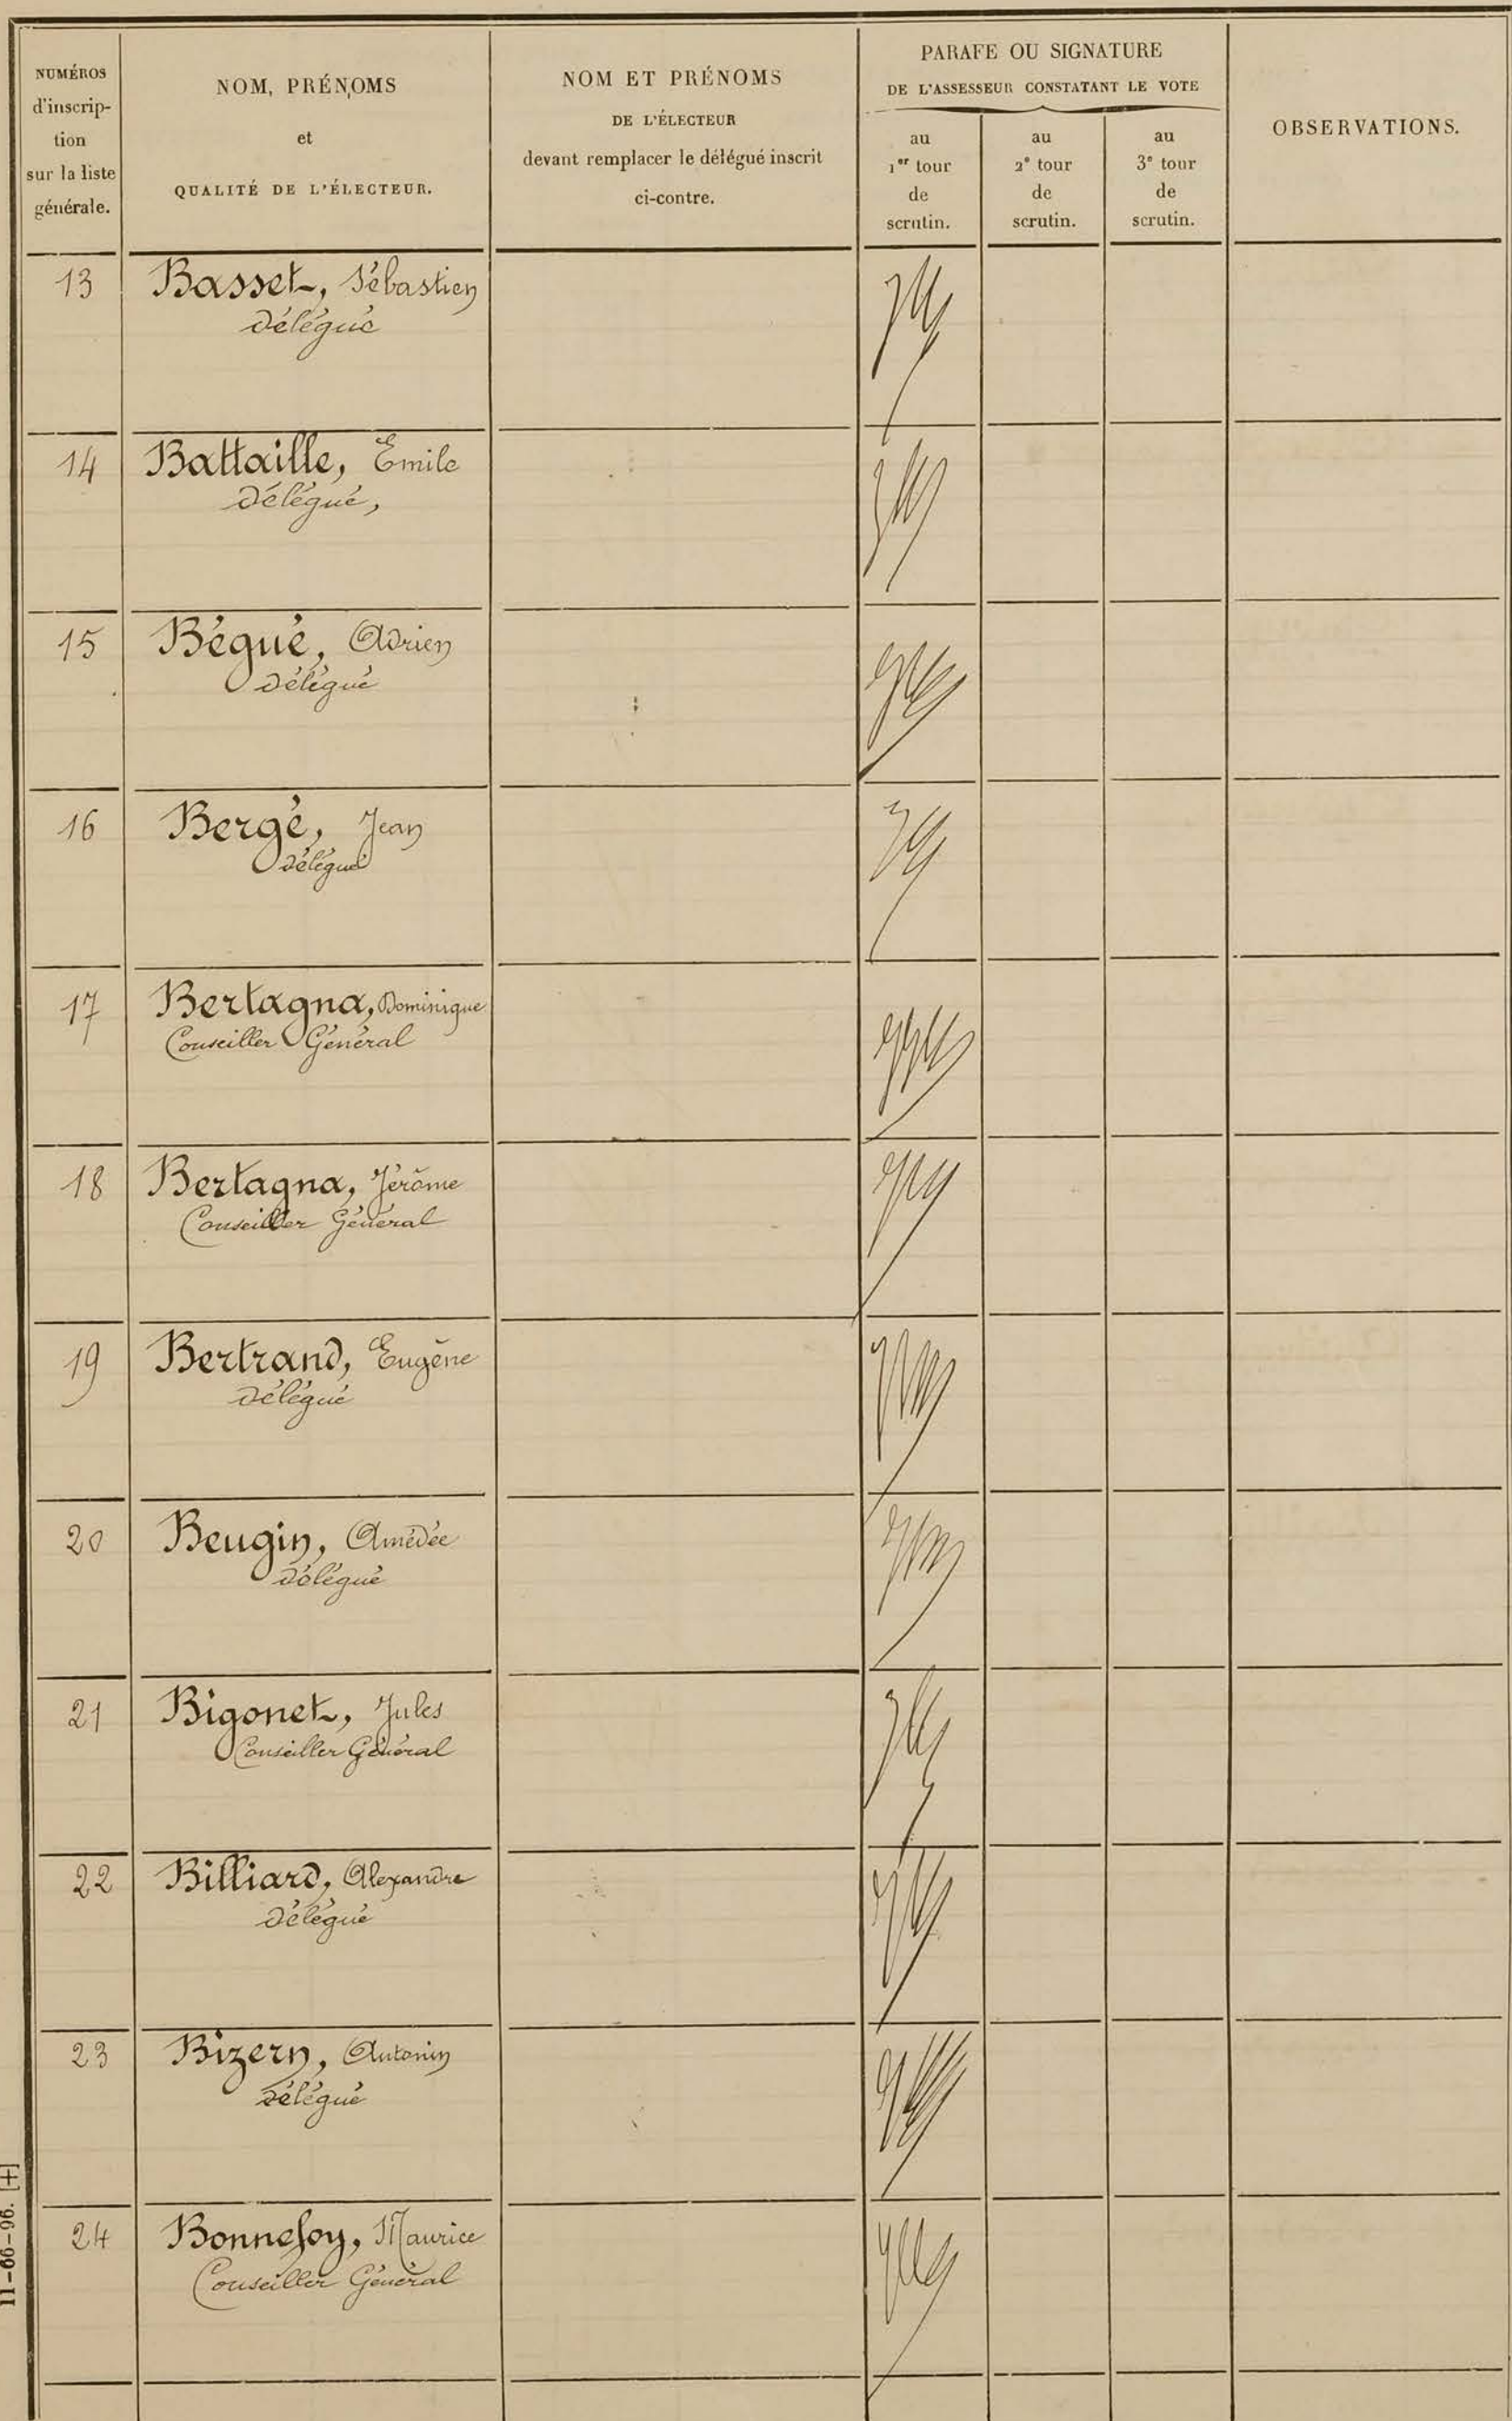 NUMÉROS
d'inscrip-
tion
sur la liste
générale.
NOM, PRÉNOMS
et
QUALITÉ DE L'ÉLECTEUR.
NOM ET PRÉNOMS
DE L'ÉLECTEUR
devant remplacer le délégué inscrit
ci-contre.
PARAFE OU SIGNATURE
DE L'ASSESSEUR CONSTATANT LE VOTE
au
1er tour
de
scrutin.
au
2e tour
de
scrutin.
au
3e tour
de
scrutin.
OBSERVATIONS.
13 Basset, Sébastien
Délégué
14 Battaille, Emile
Délégué,
15 Bégué, Adrien
Délégué
16 Bergé, Jean
Délégué
17 Bertagna, Dominique
Conseiller Général
18 Bertagna, Jérôme
Conseiller Général
19 Bertrand, Eugène
Délégué
20 Beugin, Amédée
Délégué
21 Bigonet, Jules
Conseiller Général
22 Billiard, Alexandre
Délégué
23 Bizern, Antonin
Délégué
24 Bonnefoy, Maurice
Conseiller Général
11-66-96. [+]